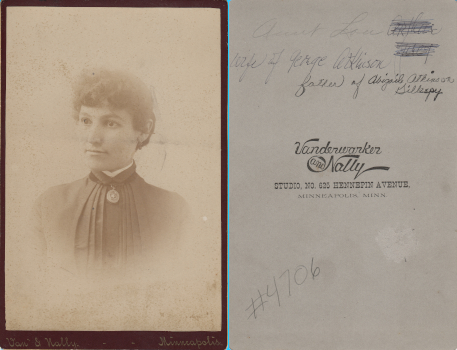 Van & Nally. - - Minneapolis.
Aunt Lou
Wife of George Atkinson
father of Abigail Atkinson
Gillespy
Vanderworker
and Nally
STUDIO, NO. 635 HENNEPIN AVENUE,
MINNEAPOLIS, MINN
#4706